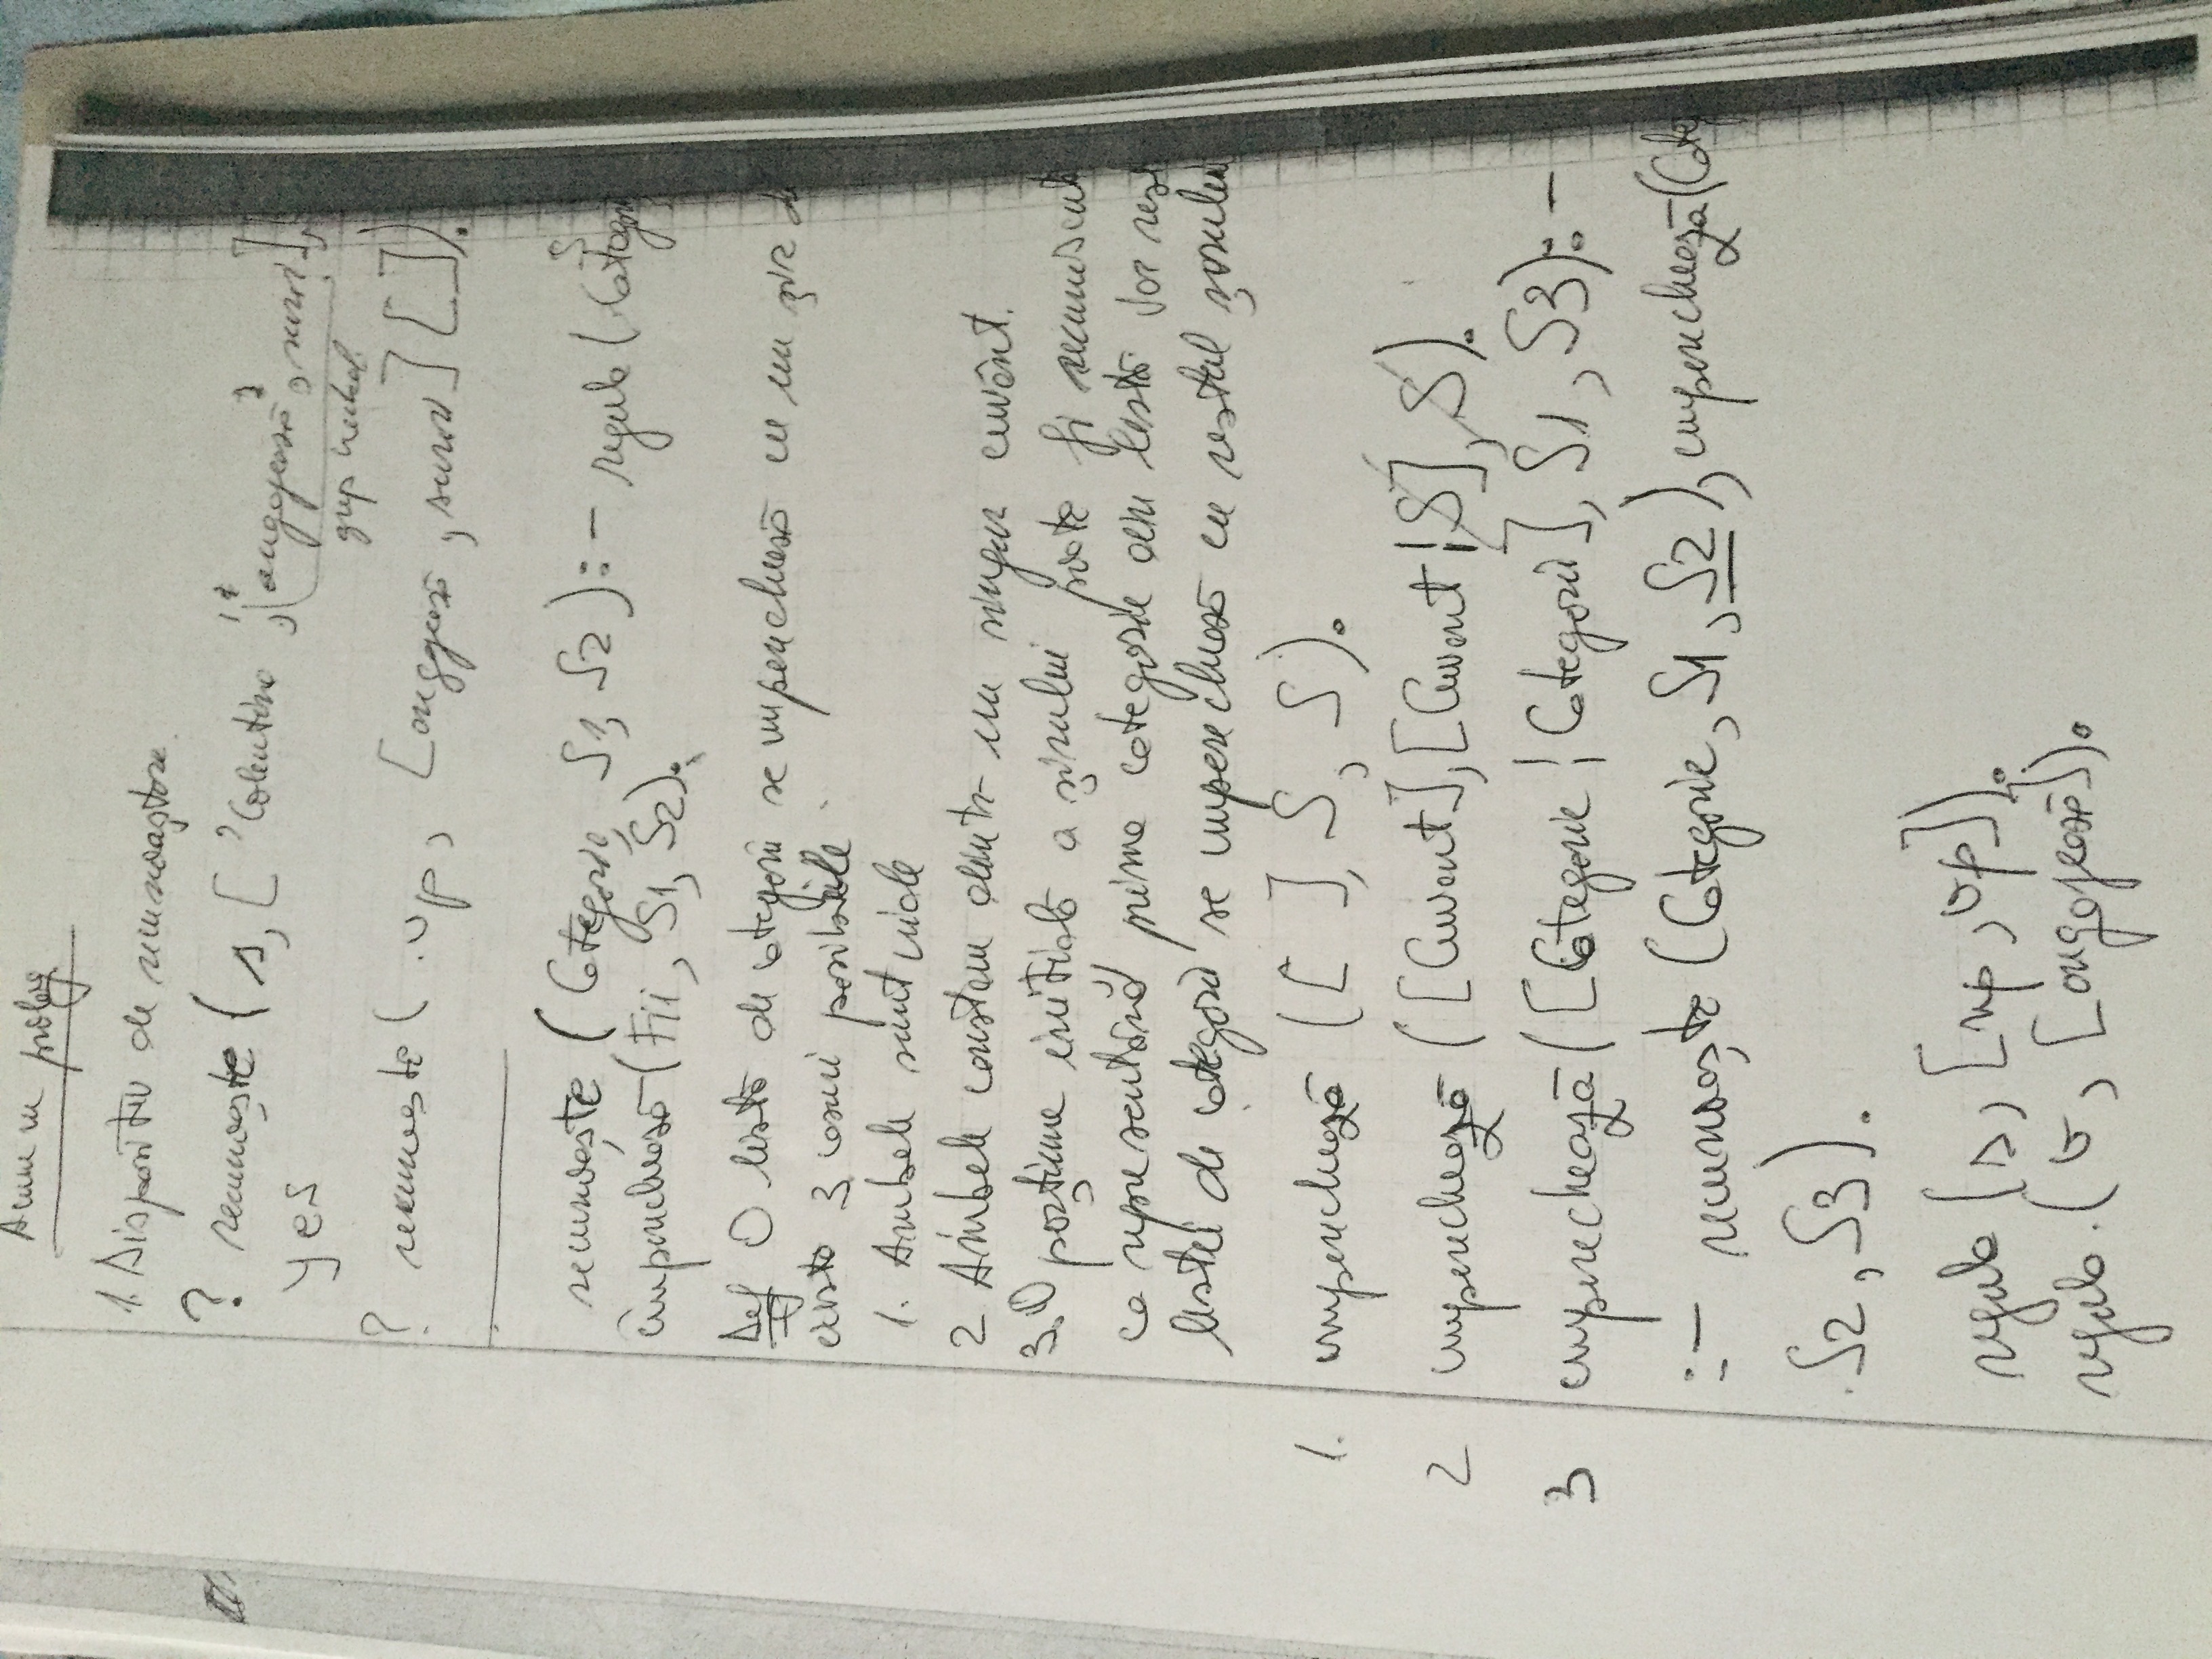 Acum în prolog
1. Dispozitiv de recunoaștere
? recunoaște (s, ['Colentina', angajează, surori],
grup verbal.
yes
? recunoaște (vp, [angajează, surori] []).
recunoaște (Categorie, S1, S2) :- regula (Categor
împerechează (Fii, S1, S2).
Def O listă de categorii se împerechează cu un șir de
există 3 cazuri posibile
1. Ambele sunt vide
2 Ambele constau dintr-un singur cuvânt.
3. O porțiune inițială a șirului poate fi recunoscută
ca reprezentând prima categorie din listă iar rest
listei de categorii se împerechează cu restul șirului
1. împerechează ([ ], S, S).
2 împerechează ([Cuvant],[Cuvant|S], S).
3 împerechează ([Categorie | Categorii], S1, S3) :-
:- recunoaște (Categorie, S1, S2), împerechează (Cate
S2, S3).
regula (s, [np, vp]).
regula (v, [angajează]).